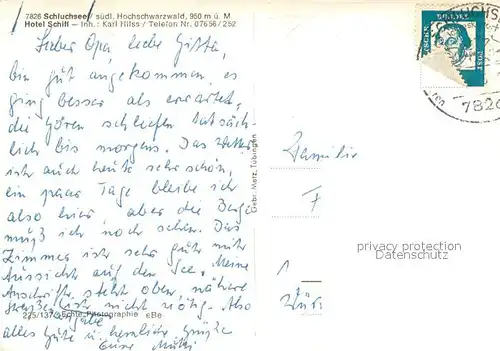 7826 Schluchsee / südl. Hochschwarzwald, 950 m ü. M.
Hotel Schiff – Inh.: Karl Nilss / Telefon Nr. 07656 / 252
Lieber Opa, liebe Gitta,
bin gut angekommen, es
ging besser als erwartet,
die Gören schliefen tatsäch-
lich bis morgens. Das Wetter
ist auch heute sehr schön,
ein paar Tage bleibe ich
also hier, aber die Berge
muß ich noch sehen. Das
Zimmer ist sehr gut, mit
Aussicht auf den See. Meine
Anschrift steht oben, nähere
ist nicht nötig. Also
alles Gute u. herzliche Grüße
Eure Mutti
225/137 Echte Photographie eBe
Gebr. Metz, Tübingen
Familie
F
privacy protection
Datenschutz
DEUTSCHE
POST
7826